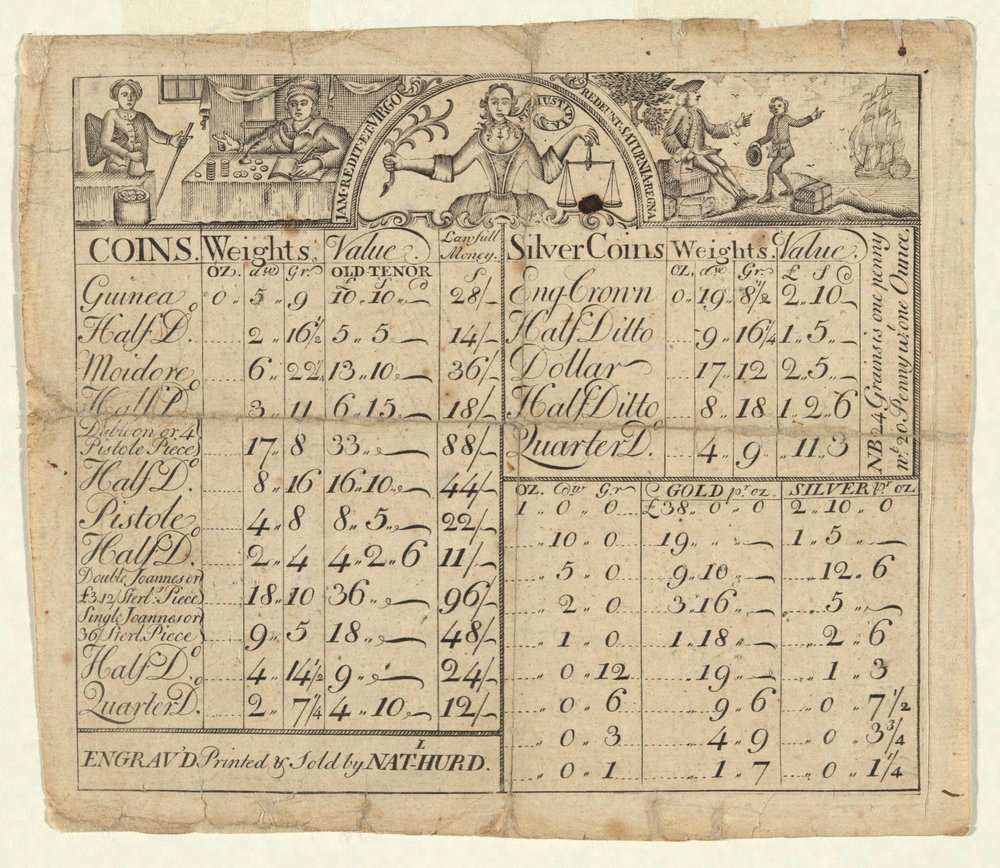 JAM·REDIT·ET·VIRGO
REDEUNT·SATURNIA·REGNA
COINS. Weights. Value. Lawfull Money.
OZ. dw Gr. OLD·TENOR S
Guinea 0 „ 5 „ 9 10 „ 10 „ — 28/-
Half D.o .... 2 „ 16 1/2 5 „ 5 „ — 14/-
Moidore .... 6 „ 22 1/2 13 „ 10 „ — 36/-
Half D.o .... 3 „ 11 6 „ 15 „ — 18/-
Dubloon or 4
Pistole Piece .... 17 „ 8 33 „ „ — 88/-
Half D.o .... 8 „ 16 16 „ 10 „ — 44/-
Pistole .... 4 „ 8 8 „ 5 „ — 22/-
Half D.o .... 2 „ 4 4 „ 2 „ 6 11/-
Double Joannes or
£3„12/ Sterl.g Piece .... 18 „ 10 36 „ „ — 96/-
Single Joannes or
36/ Sterl. Piece .... 9 „ 5 18 „ „ — 48/-
Half D.o .... 4 „ 14 1/2 9 „ „ — 24/-
Quarter D. .... 2 „ 7 1/4 4 „ 10 „ — 12/-
ENGRAV'D Printed & Sold by NAT·L HURD.
Silver Coins Weights. Value.
OZ. dw Gr. £ S d
Eng. Crown 0 „ 19 „ 8 1/2 2 „ 10 „ —
Half Ditto .... 9 „ 16 1/4 1 „ 5 „ —
Dollar .... 17 „ 12 2 „ 5 „ —
Half Ditto .... 8 „ 18 1 „ 2 „ 6
Quarter D. .... 4 „ 9 „ 11 „ 3
NB 24 Grains is one penny
wt. 20 Penny wt. one Ounce.
OZ. dw Gr GOLD pr oz. SILVER pr oz
1 „ 0 „ 0 £38 „ 0 „ 0 2 „ 10 „ 0
.... „ 10 „ 0 19 „ „ — 1 „ 5 „ —
.... „ 5 „ 0 9 „ 10 „ — .... „ 12 „ 6
.... „ 2 „ 0 3 „ 16 „ — .... „ 5 „ —
.... „ 1 „ 0 1 „ 18 „ — .... „ 2 „ 6
.... „ 0 „ 12 19 „ — .... „ 1 „ 3
.... „ 0 „ 6 9 „ 6 .... „ 0 „ 7 1/2
.... „ 0 „ 3 4 „ 9 .... „ 0 „ 3 3/4
.... „ 0 „ 1 1 „ 7 .... „ 0 „ 1 1/4